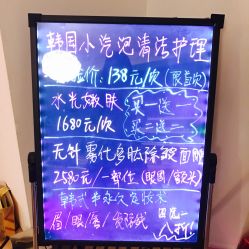 韩国小气泡清洁护理
验价:138元/次(限首次)
水光嫩肤 买一送一
1680元/次 买二送二
无针雾化多肽除皱面雕
2580元/一部位(眼周/额头)
韩式半永久定妆术
眉/眼/唇/发际线 四免一